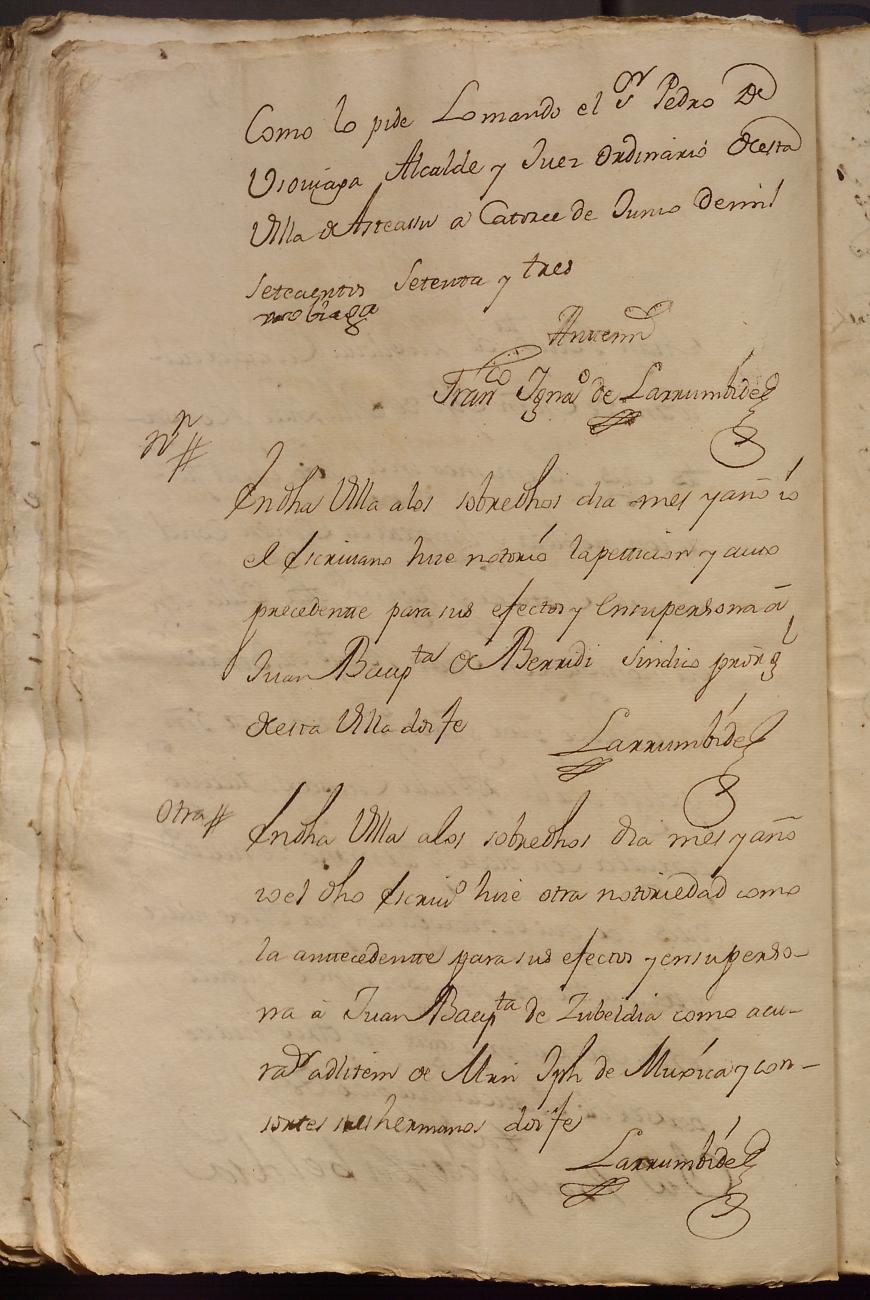 Como lo pide Lo mando el Sor Pedro De
Alcalde y Juez ordinario desta
Villa de Asteasu a Catorce de Junio de mil
setecientos setenta y tres
Antemi
Franco Ignao de Larrumbide
Nn
En dha Villa a los sobredhos dia mes y año io
el Escrivano hize notorio la peticion y auto
precedente para sus efectos y en su persona á
Juan Baupta de Berridi Sindico prōr gl
de esta Villa doi fe
Larrumbide
Otra
En dha Villa a los sobredhos dia mes y año
io el dho Escrivo hize otra notoriedad como
la antecedente para sus efectos y en su perso-
na á Juan Baupta de Zubeldia como acu-
rador adlitem de Mrn Jph de Muxica y con-
sortes sus hermanos doi fe
Larrumbide